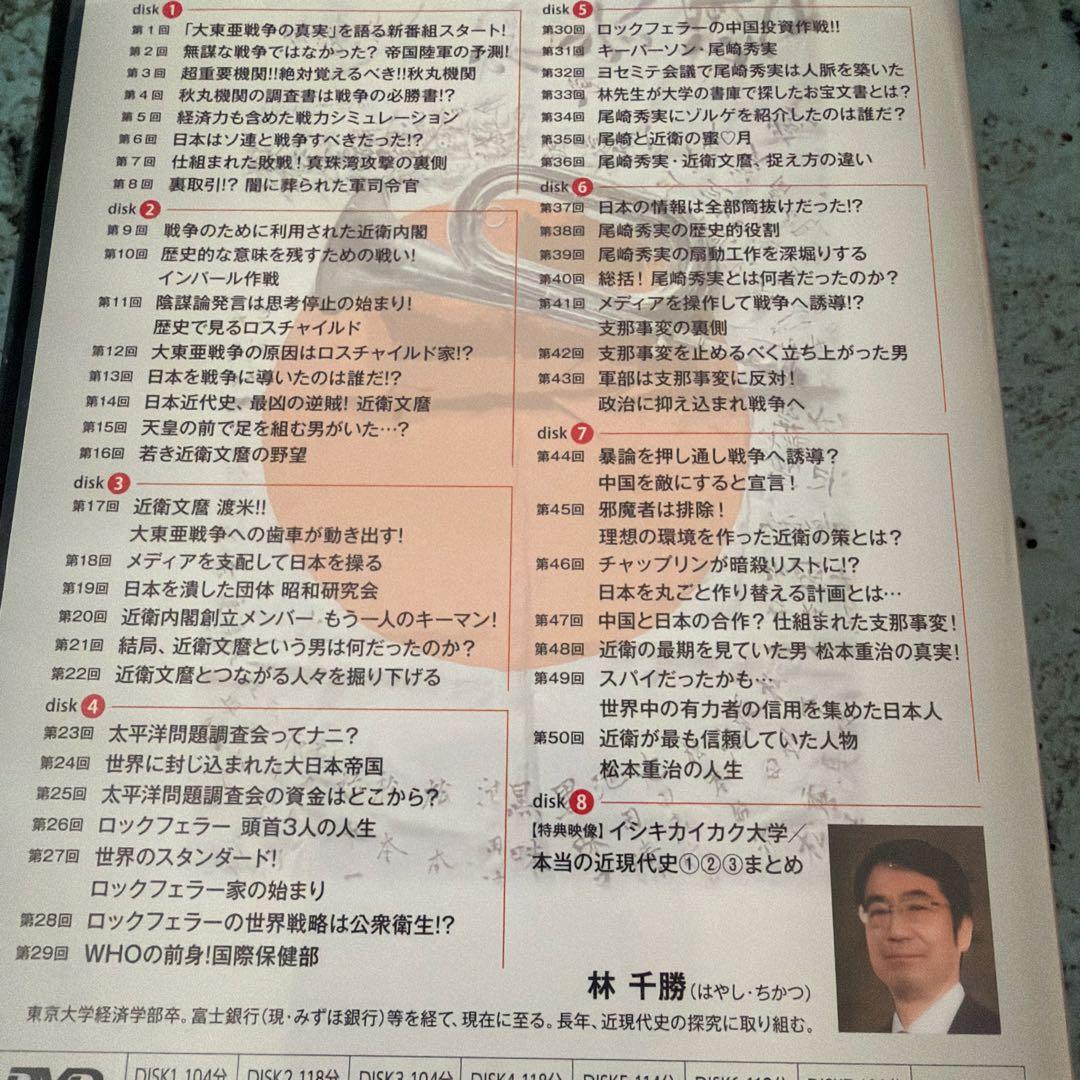 disk 1
第1回 「大東亜戦争の真実」を語る新番組スタート!
第2回 無謀な戦争ではなかった? 帝国陸軍の予測!
第3回 超重要機関!!絶対覚えるべき!!秋丸機関
第4回 秋丸機関の調査書は戦争の必勝書!?
第5回 経済力も含めた戦力シミュレーション
第6回 日本はソ連と戦争すべきだった!?
第7回 仕組まれた敗戦! 真珠湾攻撃の裏側
第8回 裏取引!? 闇に葬られた軍司令官
disk 2
第9回 戦争のために利用された近衛内閣
第10回 歴史的な意味を残すための戦い!
インパール作戦
第11回 陰謀論発言は思考停止の始まり!
歴史で見るロスチャイルド
第12回 大東亜戦争の原因はロスチャイルド家!?
第13回 日本を戦争に導いたのは誰だ!?
第14回 日本近代史、最凶の逆賊! 近衛文麿
第15回 天皇の前で足を組む男がいた…?
第16回 若き近衛文麿の野望
disk 3
第17回 近衛文麿 渡米!!
大東亜戦争への歯車が動き出す!
第18回 メディアを支配して日本を操る
第19回 日本を潰した団体 昭和研究会
第20回 近衛内閣創立メンバー もう一人のキーマン!
第21回 結局、近衛文麿という男は何だったのか?
第22回 近衛文麿とつながる人々を掘り下げる
disk 4
第23回 太平洋問題調査会ってナニ?
第24回 世界に封じ込まれた大日本帝国
第25回 太平洋問題調査会の資金はどこから?
第26回 ロックフェラー 頭首3人の人生
第27回 世界のスタンダード!
ロックフェラー家の始まり
第28回 ロックフェラーの世界戦略は公衆衛生!?
第29回 WHOの前身!国際保健部
disk 5
第30回 ロックフェラーの中国投資作戦!!
第31回 キーパーソン・尾崎秀実
第32回 ヨセミテ会議で尾崎秀実は人脈を築いた
第33回 林先生が大学の書庫で探したお宝文書とは?
第34回 尾崎秀実にゾルゲを紹介したのは誰だ?
第35回 尾崎と近衛の蜜♡月
第36回 尾崎秀実・近衛文麿、捉え方の違い
disk 6
第37回 日本の情報は全部筒抜けだった!?
第38回 尾崎秀実の歴史的役割
第39回 尾崎秀実の扇動工作を深堀りする
第40回 総括! 尾崎秀実とは何者だったのか?
第41回 メディアを操作して戦争へ誘導!?
支那事変の裏側
第42回 支那事変を止めるべく立ち上がった男
第43回 軍部は支那事変に反対!
政治に抑え込まれ戦争へ
disk 7
第44回 暴論を押し通し戦争へ誘導?
中国を敵にすると宣言!
第45回 邪魔者は排除!
理想の環境を作った近衛の策とは?
第46回 チャップリンが暗殺リストに!?
日本を丸ごと作り替える計画とは…
第47回 中国と日本の合作? 仕組まれた支那事変!
第48回 近衛の最期を見ていた男 松本重治の真実!
第49回 スパイだったかも…
世界中の有力者の信用を集めた日本人
第50回 近衛が最も信頼していた人物
松本重治の人生
disk 8
【特典映像】イシキカイカク大学/
本当の近現代史①②③まとめ
林 千勝(はやし・ちかつ)
東京大学経済学部卒。富士銀行(現・みずほ銀行)等を経て、現在に至る。長年、近現代史の探究に取り組む。
DVD DISK1 104分 DISK2 118分 DISK3 104分 DISK4 118分 DISK5 114分